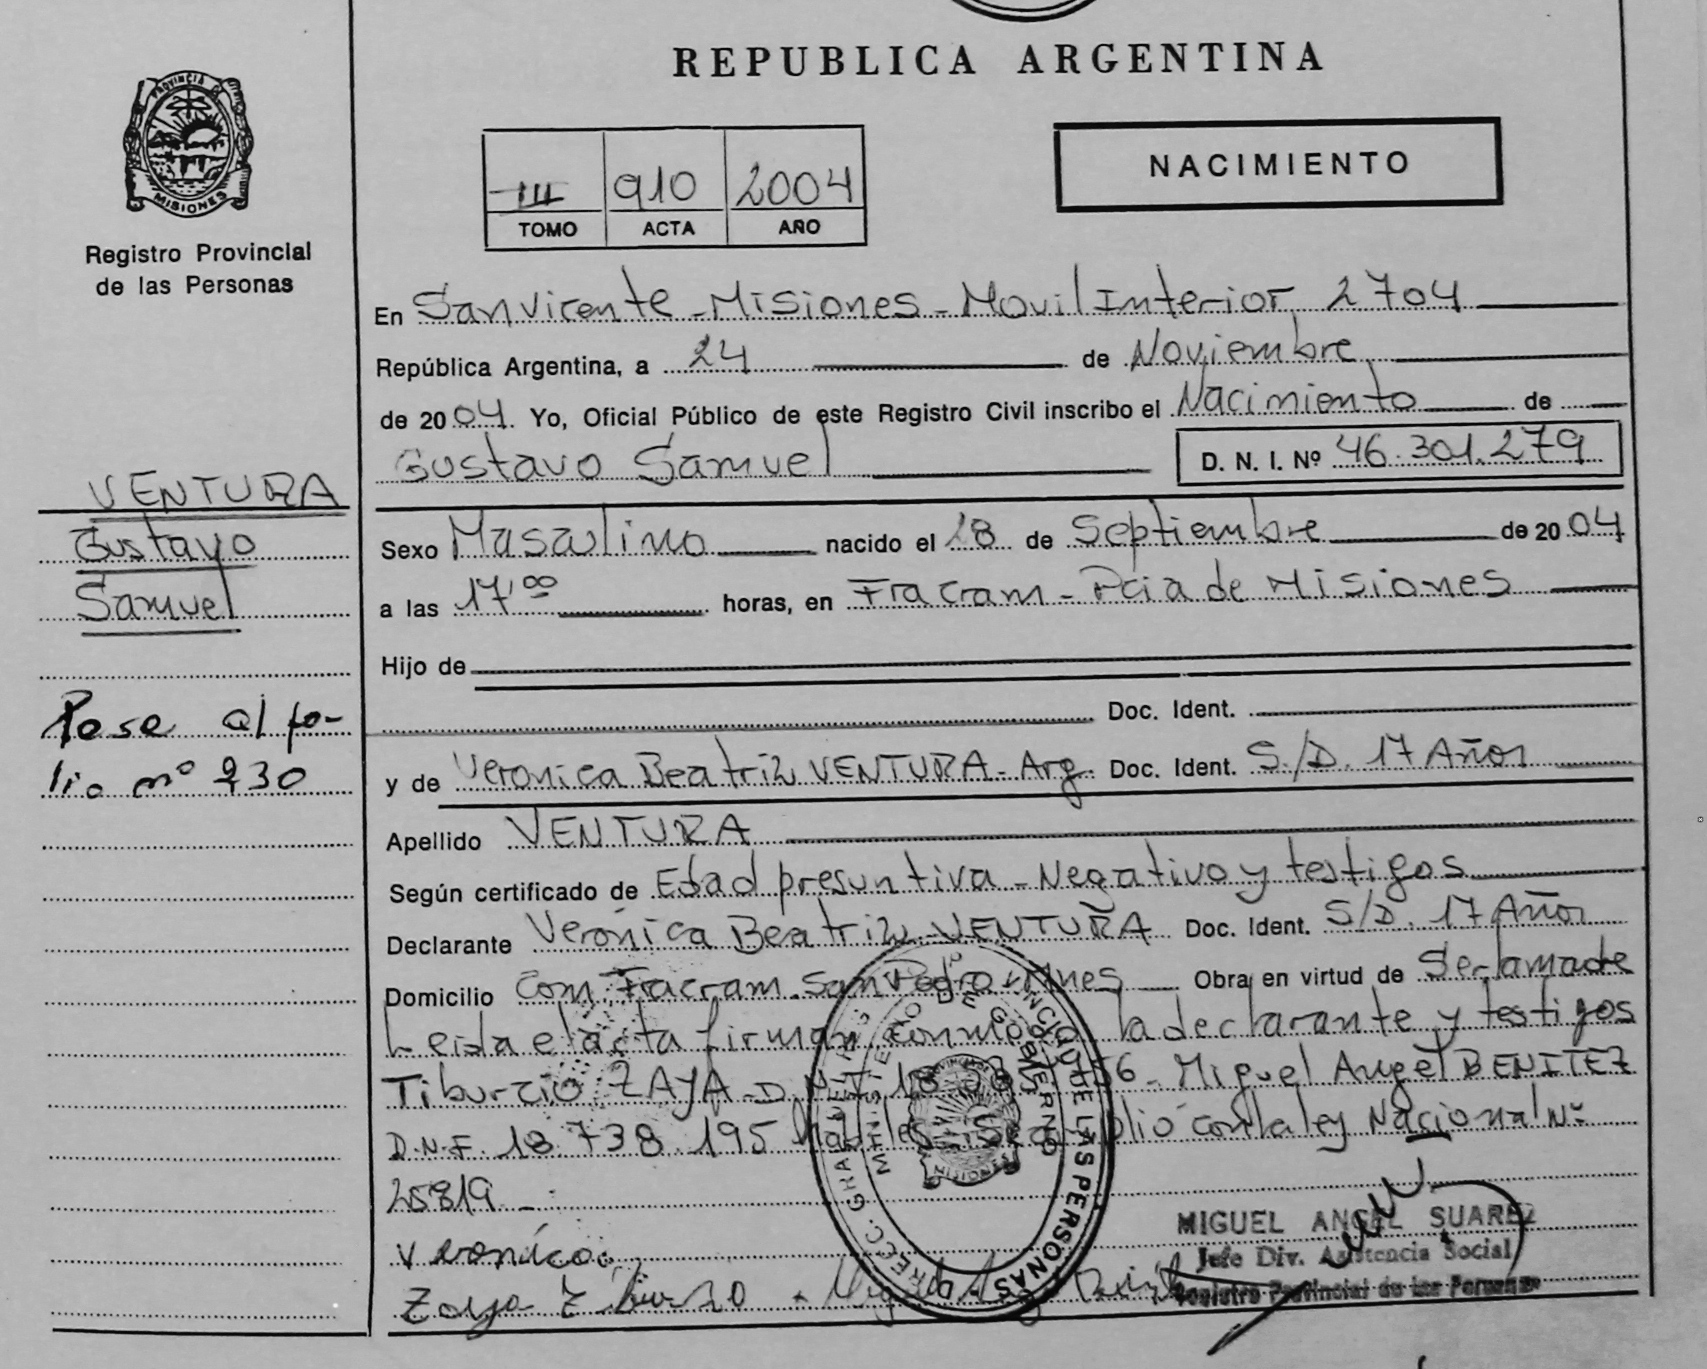 REPUBLICA ARGENTINA
PROVINCIA DE
MISIONES
Registro Provincial
de las Personas
III 910 2004
TOMO ACTA AÑO
NACIMIENTO
En San Vicente - Misiones - Movil Interior 2704
República Argentina, a 24 de Noviembre
de 2004. Yo, Oficial Público de este Registro Civil inscribo el Nacimiento de
Gustavo Samuel D. N. I. Nº 46.301.279
VENTURA
Gustavo
Samuel
Sexo Masculino nacido el 28 de Septiembre de 2004
a las 17:00 horas, en Fracram - Pcia de Misiones
Hijo de
Doc. Ident.
Pase al fo-
lio nº 930
y de Veronica Beatriz VENTURA - Arg. Doc. Ident. S/D. 17 Años
Apellido VENTURA
Según certificado de Edad presuntiva - Negativo y testigos
Declarante Verónica Beatriz VENTURA Doc. Ident. S/D. 17 Años
Domicilio Com. Fracram. San Pedro - Mnes Obra en virtud de Ser la madre
Leida el acta firman conmigo la declarante y testigos
Tiburcio ZAYA - D.N.I. 18 56 - Miguel Angel BENITEZ
D.N.I. 18.738.195 con la ley Nacional Nº
25819
Verónica
Zaya
MIGUEL ANGEL SUAREZ
Jefe Div. Asistencia Social
Registro Provincial de las Personas
MINISTERIO DE GOBIERNO
DE LAS PERSONAS
MISIONES